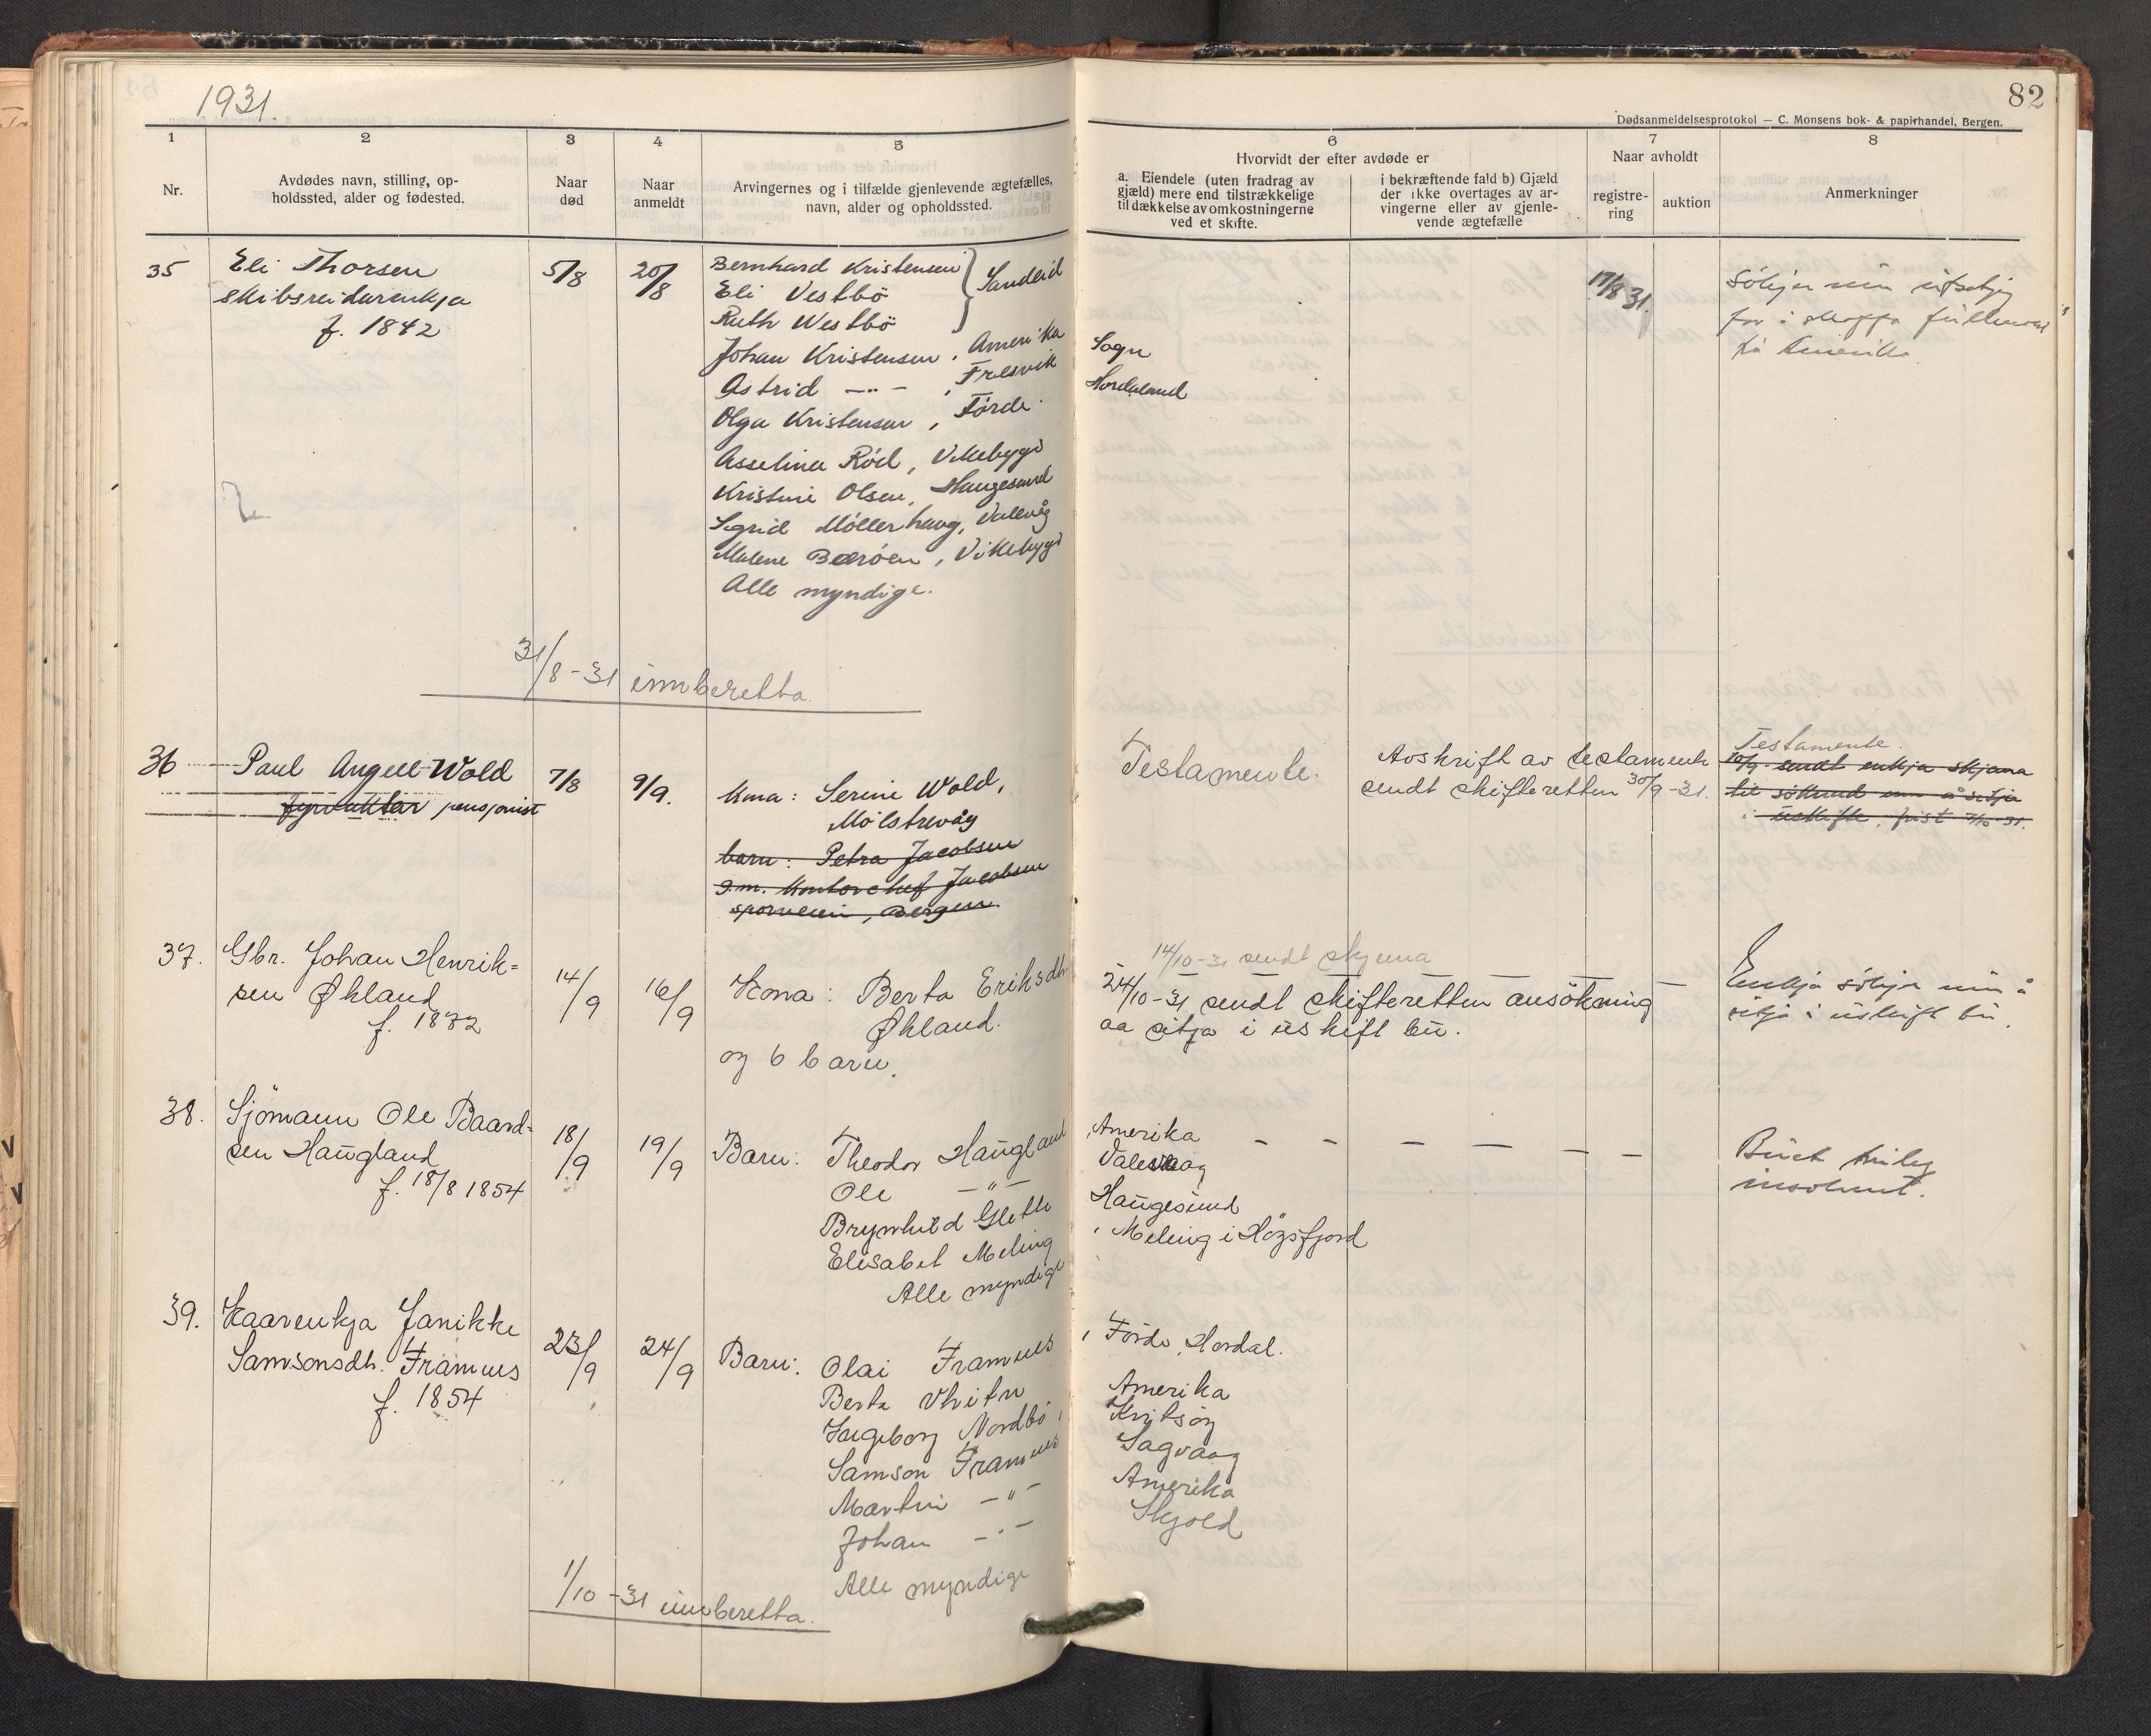 1931.
82
Dødsanmeldelsesprotokol — C. Monsens bok- & papirhandel, Bergen.
1
2
3
4
5
6
7
8
Nr.
Avdødes navn, stilling, op-
holdssted, alder og fødested.
Naar
død
Naar
anmeldt
Arvingernes og i tilfælde gjenlevende ægtefælles,
navn, alder og opholdssted.
Hvorvidt der efter avdøde er
a. Eiendele (uten fradrag av
gjæld) mere end tilstrækkelige
til dækkelse av omkostningerne
ved et skifte.
i bekræftende fald b) Gjæld
der ikke overtages av ar-
vingerne eller av gjenle-
vende ægtefælle
Naar avholdt
registre-
ring
auktion
Anmerkninger
35
Eli Thorsen
skibsreidarenkja
f. 1842
5/8
20/8
Bernhard Kristensen
Eli Vestbö
Ruth Westbö
Sandeid
Johan Kristensen, Amerika
Astrid —"—, Fresvik Sogn
Olga Kristensen, Förde Hordaland
Asselina Röd, Vikebygd
Kristine Olsen, Haugesund
Sigrid Möllerhaug, Valevåg
Malene Bæröen, Vikebygd
Alle myndige.
17/8 31.
Søkjer um utsetjing
for i skaffa fullmakt
frå Amerika.
31/8-31 innberetta.
36
Paul Angell Wold
fyrvaktar pensjonist
7/8
9/9.
Kona: Serine Wold,
Mølstrevåg
barn: Petra Jacobsen
g.m. Kontorchef Jacobsen
sporveien, Bergen.
Testamente.
Avskrift av testamente
sendt skifteretten 30/9-31.
Testamente.
10/9. sendt enkja skjema
til søknad um å sitja
i uskifte, frist
37.
Gbr. Johan Henrik=
sen Økland
f. 1872
14/9
16/9
Kona: Berta Eriksdtr
Økland.
og 6 barn.
14/10-31 sendt skjema
24/10-31 sendt skifteretten ansökning
aa sitja i uskift bu.
Enkja søkjer um å
sitja i uskift bu.
38.
Sjömann Ole Baard=
sen Haugland
f. 18/8 1854
18/9
19/9
Barn: Theodor Haugland, Amerika
Ole —"— Valevaag
Brynhild Glette Haugesund
Elisabet Meling, Meling i Högsfjord
Alle myndige
Buet truleg
insolvent.
39.
Kaarenkja Janikke
Samsonsdtr. Framnes
f. 1854
23/9
24/9
Barn: Olai Framnes, Förde, Hordal.
Berta Vhitn Amerika
Ingeborg Nordbö, Kvitsöy
Samson Framnes Sagvaag
Martin —"— Amerika
Johan —"— Skjold
Alle myndige
1/10-31 innberetta.